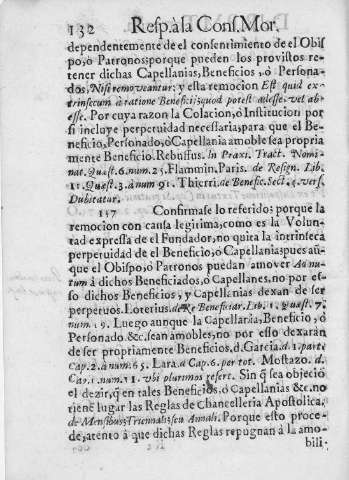 132 Resp. à la Cons. Mor.
dependentemente de el consentimiento de el Obis
po, ò Patronos; porque pueden los provistos re-
tener dichas Capellanias, Beneficios, ò Persona-
dos, Nisi removeantur: y esta remocion Est quid ex-
trinsecum à ratione Beneficij; quod potest adesse, vel ab-
esse. Por cuya razon la Colacion, ò Institucion por
si incluye perpetuidad necessaria, para que el Be-
neficio, Personado, ò Capellania amoble sea propria
mente Beneficio. Rebuffus. In Praxi. Tract. Nomi-
nat. Quæst. 6. num. 25. Flammin. Paris. de Resign. Lib.
11. Quæst. 3. à num 91. Thierri. de Benefic. Sect. 4. vers.
Dubitatur.
147 Confirmase lo referido; porque la
remocion con causa legitima, como es la Volun-
tad expressa de el Fundador, no quita la intrinseca
perpetuidad de el Beneficio, ò Capellania; pues aũ
que el Obispo, ò Patronos puedan amover Ad nu-
tum à dichos Beneficiados, ò Capellanes, no por es-
so dichos Beneficios, y Capellanias dexan de ser
perpetuos. Loterius. de Re Beneficiar. Lib. 1. Quæst. 7.
num. 19. Luego aunque la Capellania, Beneficio, ò
Personado &c. sean amobles, no por esso dexaràn
de ser propriamente Beneficios, d. Garcia. d. 1. parte
Cap. 2. à num. 65. Lara. d. Cap. 6. per tot. Mostazo. d.
Cap. 1. num. 11. ubi plurimos refert. Sin q̃ sea objeciõ
el dezir, q̃ en tales Beneficios, ò Capellanias &c. no
tienẽ lugar las Reglas de Chancelleria Apostolica,
de Mensibus; Triennali; seu Annali. Porque esto proce-
de, atento à que dichas Reglas repugnan à la amo-
bili-